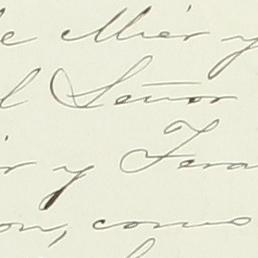 de Mier y
el Señor
ir y Tera
on, como